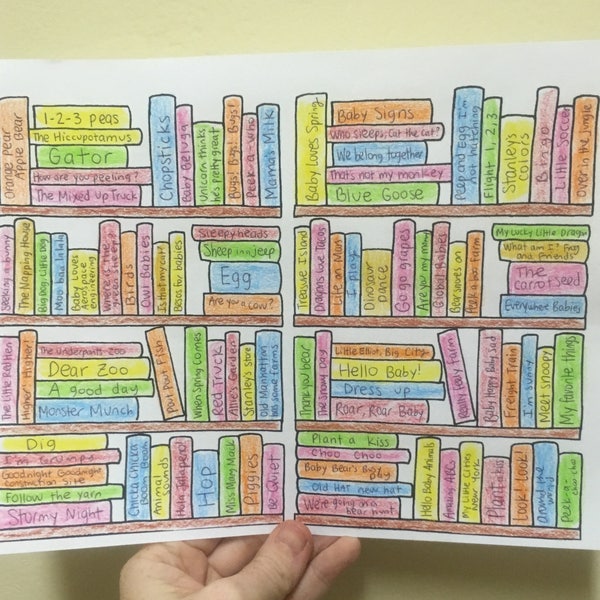 Orange Pear Apple Bear
1-2-3 peas
The Hiccupotamus
Gator
How are you peeling?
The Mixed up Truck
Chopsticks
Baby Beluga
Unicorn thinks he's pretty great
Bugs! Bugs! Bugs!
Peek-a-Who
Mama's Milk
Baby Loves Spring
Baby Signs
Who sleeps, Cat the Cat?
We belong together
That's not my monkey
Blue Goose
Peep and Egg I'm not hatching
Flight 1,2,3
Stanleys Colors
Bingo
Little Soccer
Over in the Jungle
a bunny
The Napping House
Big Dog, Little Dog
Moo baa lalala
Baby Loves Aerospace engineering
Where is the green sheep
Birds
Owl Babies
Is that my cat?
Besos for babies
Sleepyheads
Sheep in a jeep
Egg
Are you a Cow?
Treasure Island
Dragons love Tacos
Life on Mars
I play
Dinosaur Dance
Go go grapes
Are you my mommy
Global Babies
Bear snores on
Peek a Boo Farm
My Lucky Little Dragon
What am I? Frog and Friends
The Carrot Seed
Everywhere Babies
The Little Red Hen
Higher! Higher!
The Underpants Zoo
Dear Zoo
A good day
Monster Munch
Pout Pout Fish
When Spring comes
Red Truck
Allie's Garden
Stanley's store
Old Manhattan has some farms
Thank you bear
The Snowy Day
Little Elliot, Big City
Hello Baby!
Dress up
Roar, Roar Baby
Farm
Baby Happy Baby Sad
Freight Train
I'm sunny
Meet snoopy
My favorite things
Dig
I'm Grumpy
Goodnight Goodnight Construction Site
Follow the yarn
Stormy Night
Chicka Chicka Boom Boom
Animal Sounds
Hola Jalapeno
Hop
Miss Mary Mack
Piggies
Be Quiet
Plant a kiss
Choo Choo
Baby Bear's Busy Day
Old Hat new hat
We're going on a bear hunt
Hello Baby Animals
Animal ABCs
My Little Cities New York
Plant a kiss
Look Look!
Around the world
Peek-a- choo choo